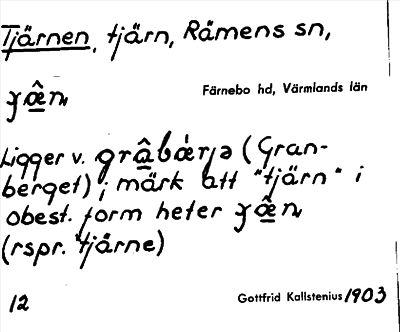 Tjärnen, tjärn, Råmens sn,
Färnebo hd, Värmlands län
Ligger v. (Gran-
berget); märk att "tjärn" i
obest. form heter
(rspr. tjärne)
12
Gottfrid Kallstenius 1903